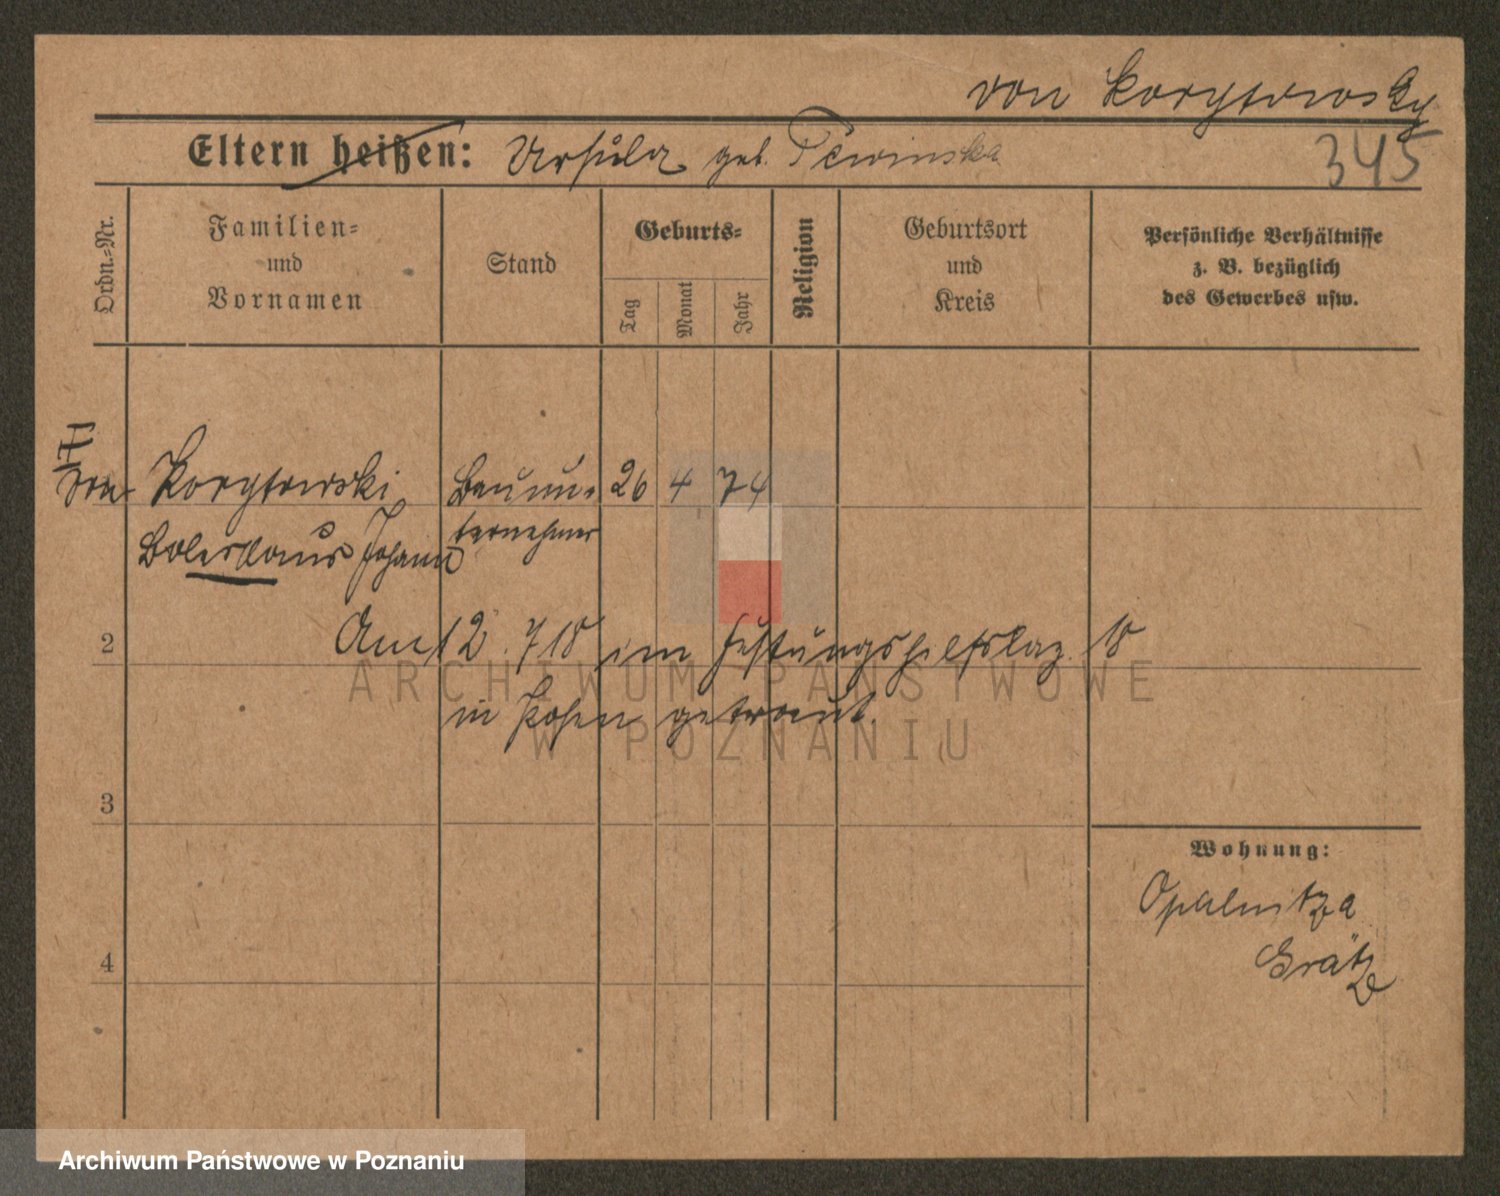 von Korytowsky
Eltern heißen: Ursula geb. Pewinska
345
Ordn.-Nr.
Familien-
und
Vornamen
Stand
Geburts-
Tag
Monat
Jahr
Religion
Geburtsort
und
Kreis
Persönliche Verhältnisse
z. B. bezüglich
des Gewerbes usw.
von Korytowski Bauun- 26 4 74
Boleslaus Johann ternehmer
2
Am 12. 7 18 im Festungshilfslaz. 8
in Posen getraut.
3
Wohnung:
Opalenitza
Grätz
4
ARCHIWUM PAŃSTWOWE
W POZNANIU
Archiwum Państwowe w Poznaniu